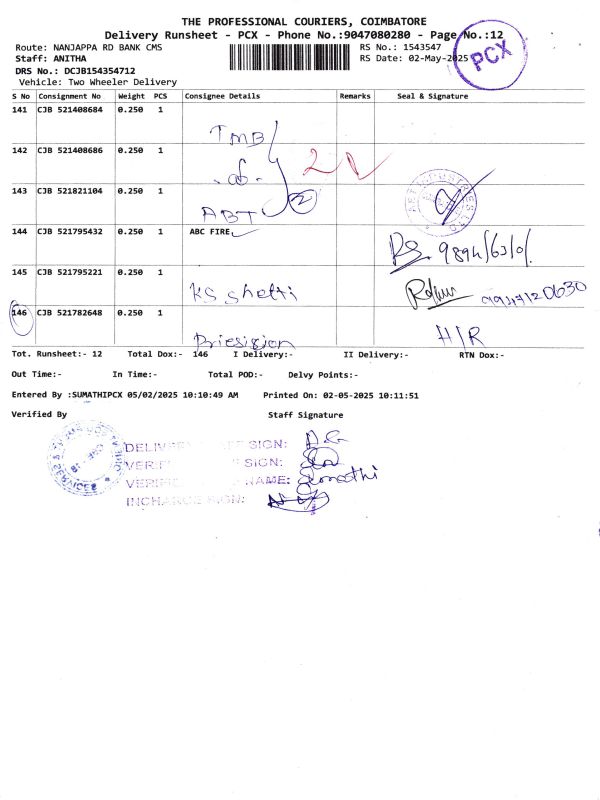 THE PROFESSIONAL COURIERS, COIMBATORE
Delivery Runsheet - PCX - Phone No.:9047080280 - Page No.:12
Route: NANJAPPA RD BANK CMS
RS No.: 1543547
Staff: ANITHA
RS Date: 02-May-2025
PCX
DRS No.: DCJB154354712
Vehicle: Two Wheeler Delivery
S No Consignment No Weight PCS Consignee Details Remarks Seal & Signature
141 CJB 521408684 0.250 1
TMB
142 CJB 521408686 0.250 1
2
143 CJB 521821104 0.250 1
ABT 2
144 CJB 521795432 0.250 1 ABC FIRE
145 CJB 521795221 0.250 1
KS Shetti
9947120630
146 CJB 521782648 0.250 1
H/R
Tot. Runsheet:- 12 Total Dox:- 146 I Delivery:- II Delivery:- RTN Dox:-
Out Time:- In Time:- Total POD:- Delvy Points:-
Entered By :SUMATHIPCX 05/02/2025 10:10:49 AM Printed On: 02-05-2025 10:11:51
Verified By Staff Signature
DELIVERY SIGN:
SIGN:
NAME: Sumathi
INCHARGE SIGN:
SERVICES